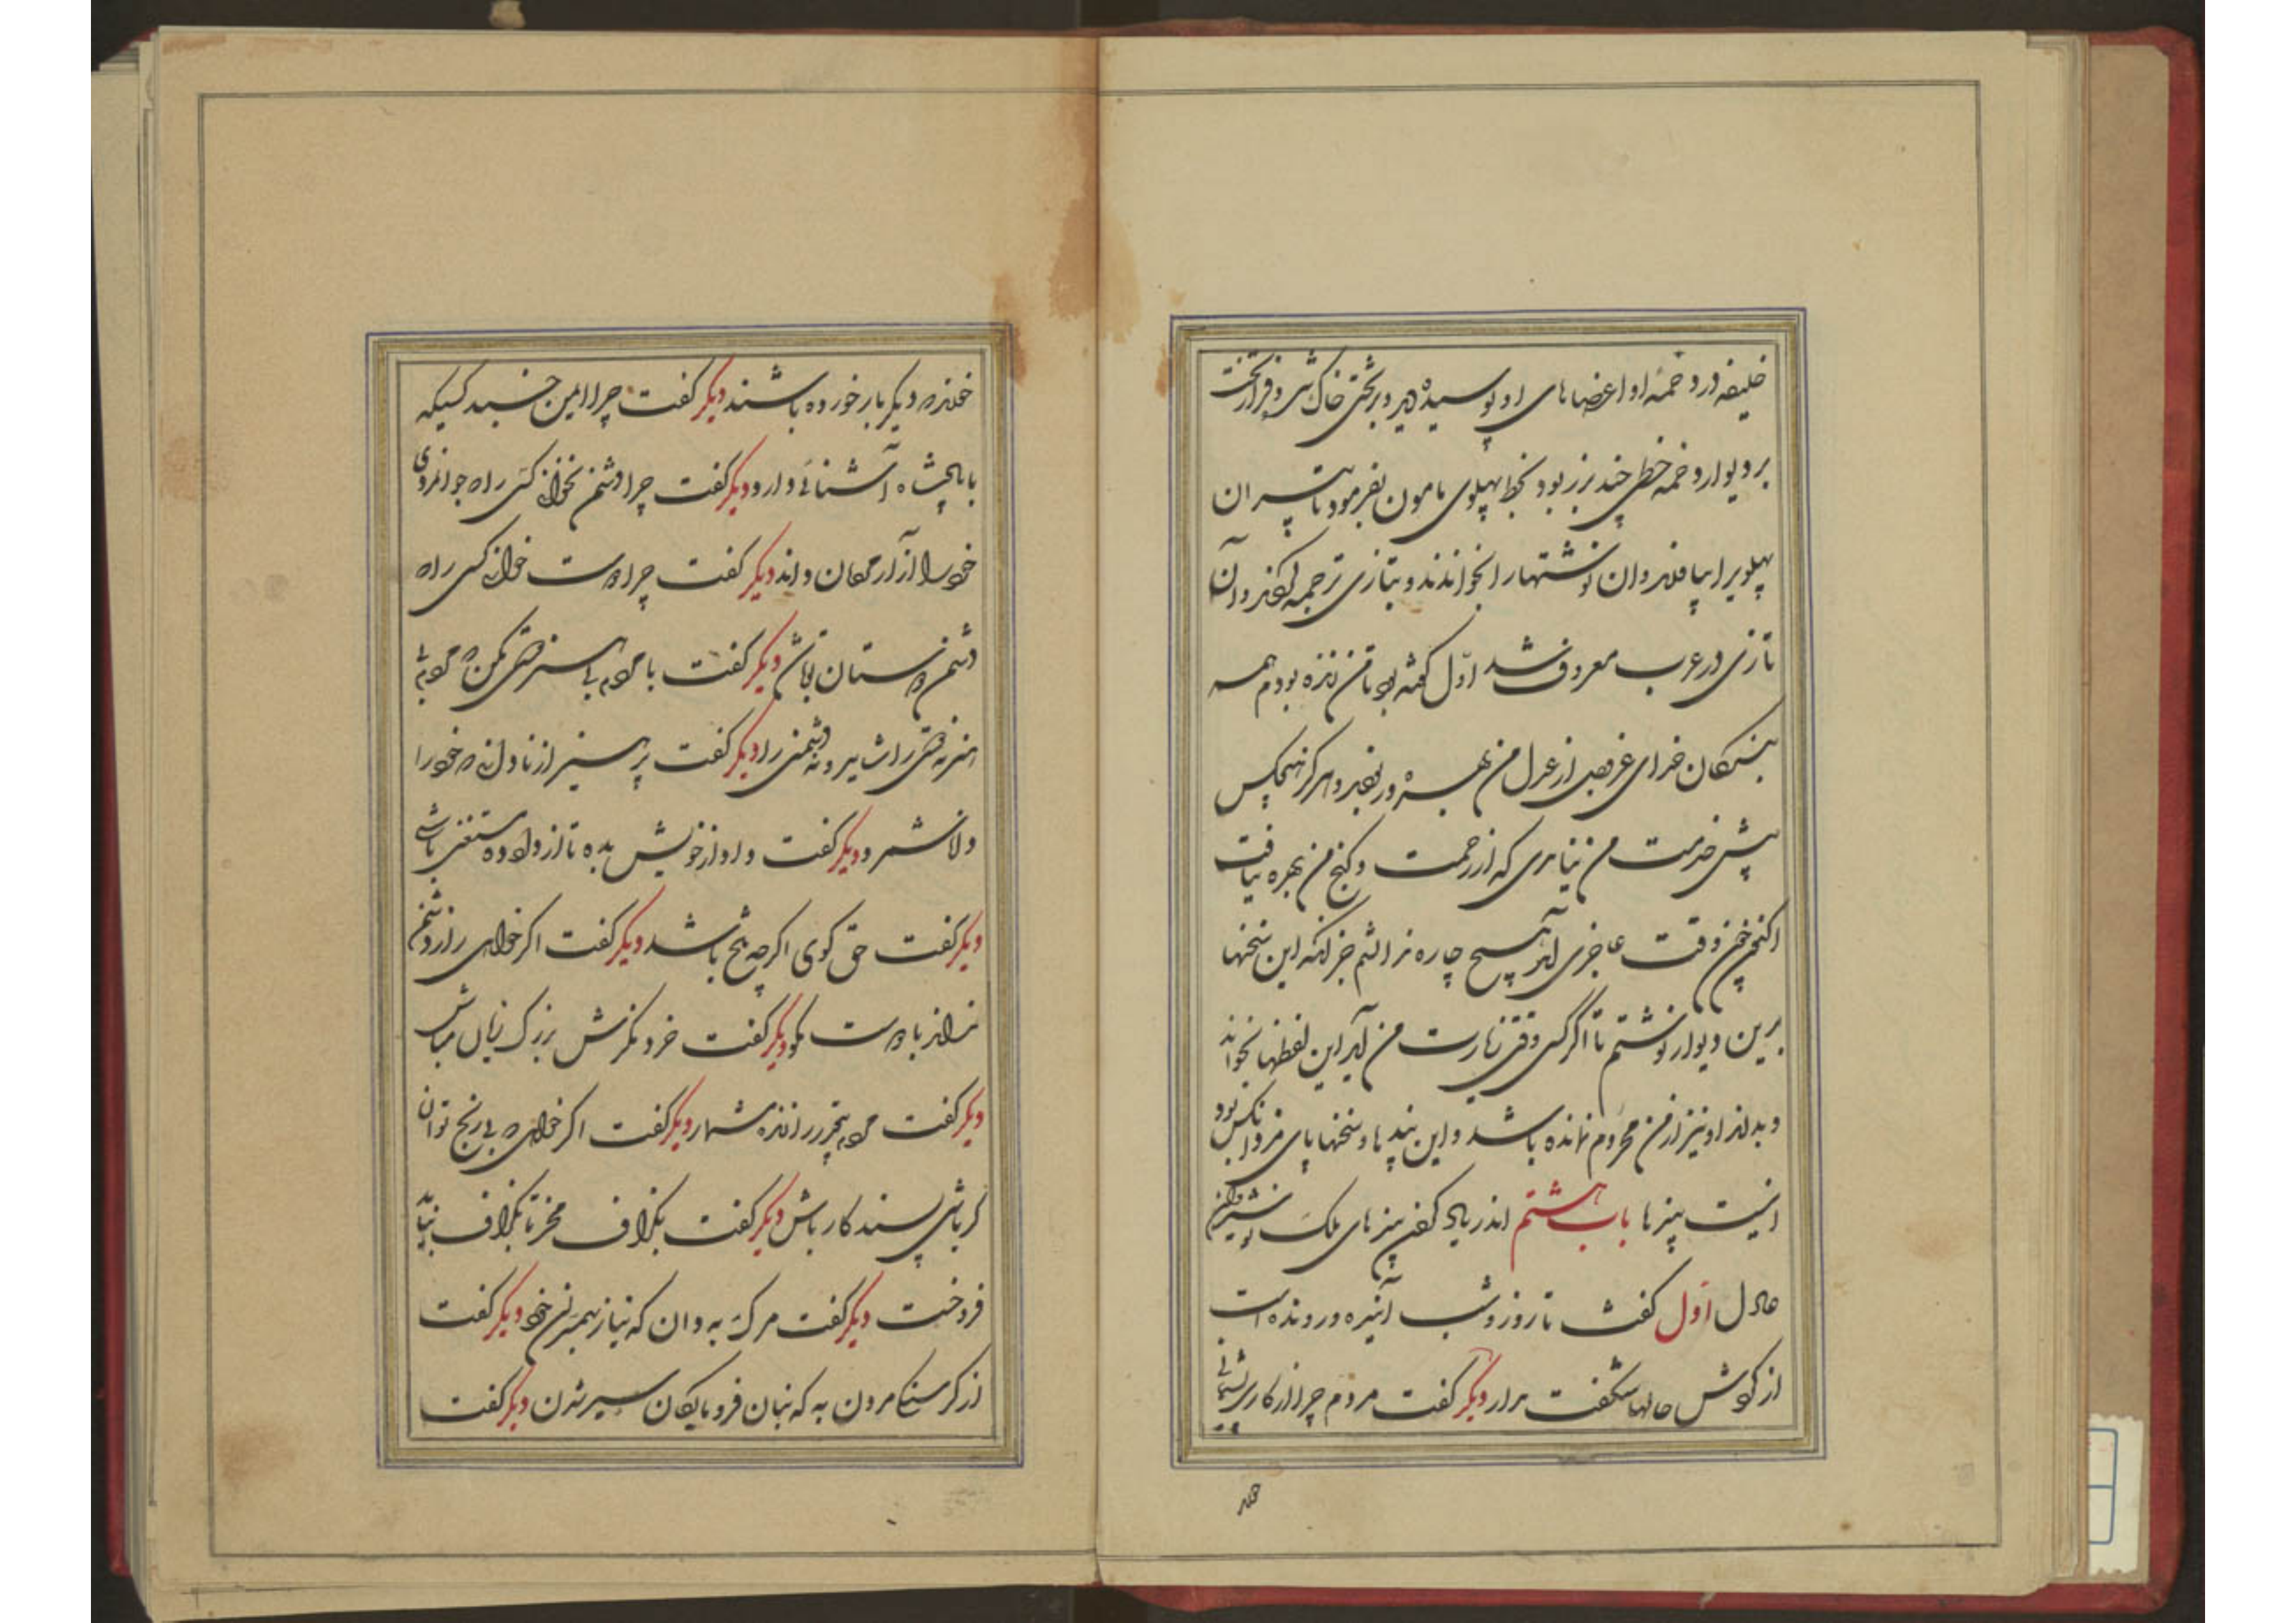 خلیفه در دخمه او اعضاهای او پوسیده دید و بر تختی خاک شده و فراز تخت
بر دیوار دخمه خطی چند بزر بود بخط پهلوی مامون بفرمود تا دبیران
پهلویرا بیاوردند و ان نوشتهارا بخواندند و بتازی ترجمه کردند و آن
تازی در عرب معروف شد اوّل گفته بود تا من زنده بودم همه
بندگان خدای عزوجل از عدل من بهره ور بودند و هرگز هیچکس
پیش خدمت من نیامدی که از رحمت و گنج من بهره نیافت
اکنون چون وقت عاجزی آمد هیچ چاره ندانستم جز انکه این سخنها
برین دیوار نوشتم تا اگر کسی وقتی زیارت من آید این لفظها بخواند
و بداند او نیز از من محروم نمانده باشد و این پندها و سخنها پای مزد انکس بود
اینست پندها باب هشتم اندر یاد کردن پندهای ملک نوشیروان
عادل اوّل گفت تا روز و شب آینده و رونده است
از گردش حالها شگفت مدار دیگر گفت مردم چرا از کاری پشیمانی
خورند که دیگر بار خورده باشند دیگر گفت چرا ایمن خسبد کسیکه
با پادشاه آشنائی دارد دیگر گفت چرا دشمن نخوانی کسی راکه جوانمردی
خود را از آزار مردمان داند دیگر گفت چرا دوست خوانی کسی راکه
دشمن دوستان تو باشد دیگر گفت با مردم بی هنر دوستی مکن که مردم بی
هنر نه دوستی را شاید و نه دشمنی را دیگر گفت پرهیز از نادانی که خود را
دانا شمرد دیگر گفت داد از خویشتن بده تا از داور مستغنی باشی
دیگر گفت حق گوی اگرچه تلخ باشد دیگر گفت اگر خواهی راز تو دشمن
نداند با دوست مگو دیگر گفت خرد نگرش بزرگ زیان مباش
دیگر گفت مردم بیقدر را زنده مشمار دیگر گفت اگر خواهی که بی رنج توانگر
باشی پسندکار باش دیگر گفت بگزاف مخر تا بگزاف نباید
فروخت دیگر گفت مرگ به دان که نیاز بهمسران خود دیگر گفت
از گرسنگی مردن به که بنان فرومایگان سیر شدن دیگر گفت